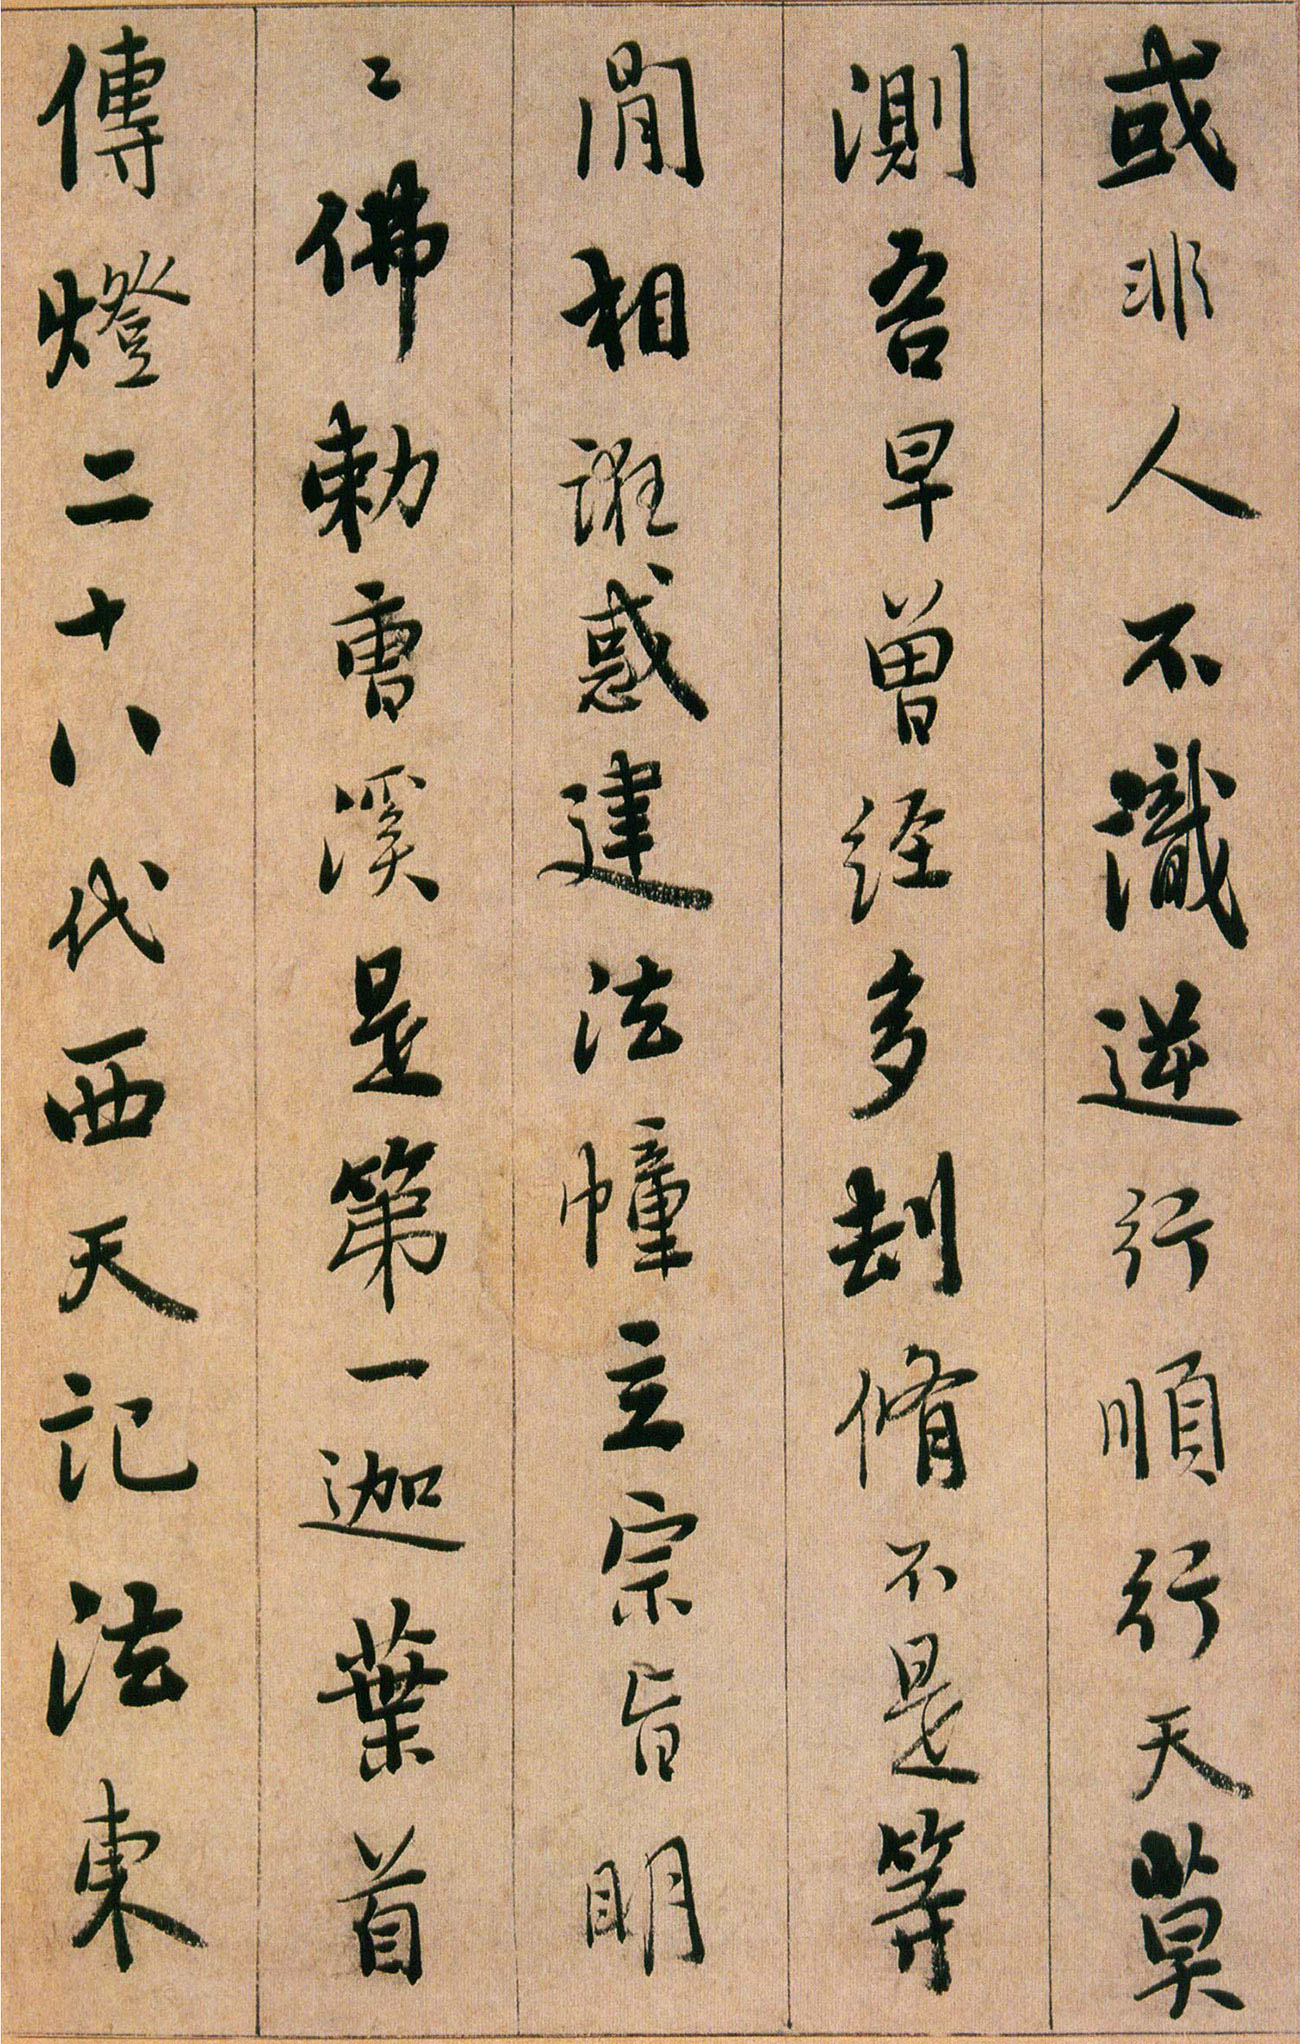 或非人不識逆行順行天莫
測吾早曾経多刦脩不是等
閒相誑惑建法幢立宗旨明
〻佛勅曹溪是第一迦葉首
傳燈二十八代西天記法東